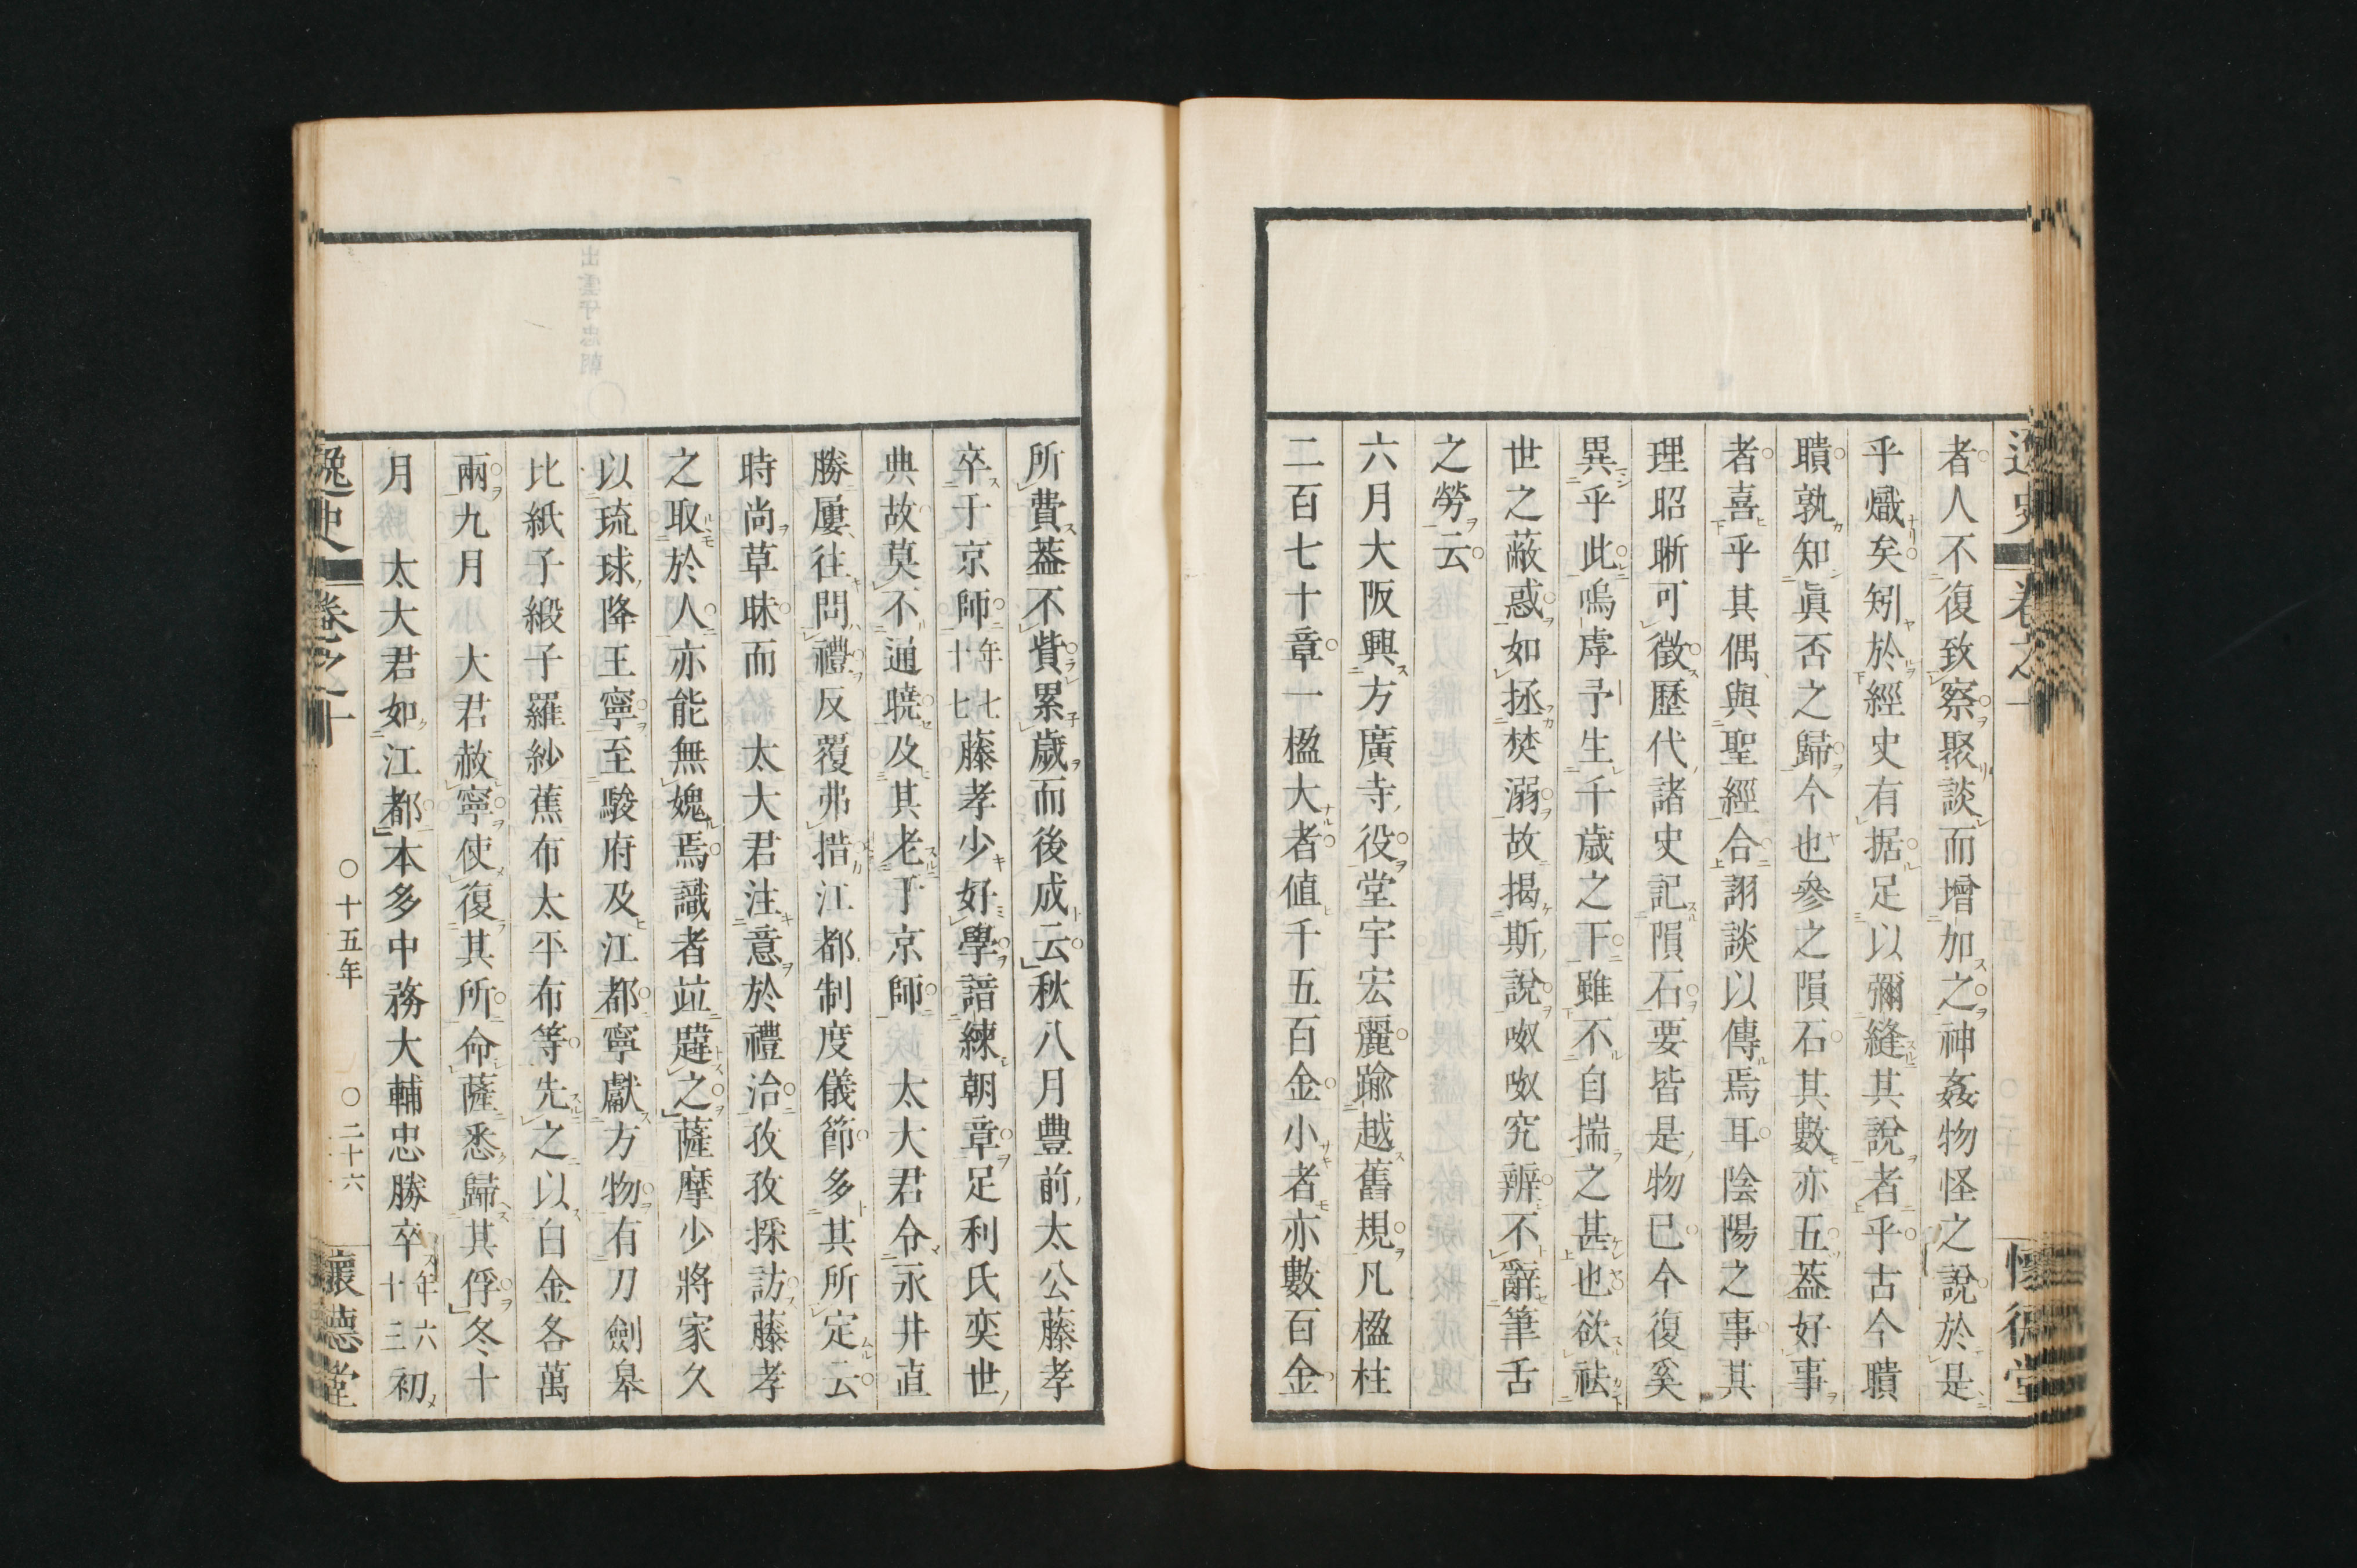 者人不復致察聚談而增加之神姦物怪之說於是
乎熾矣矧於經史有据足以彌縫其說者乎古今聵
聵孰知眞否之歸今也參之隕石其數亦五葢好事
者喜乎其偶與聖經合詡談以傳焉耳陰陽之事其
理昭晰可徵歷代諸史記隕石要皆是物已今復奚
異乎此嗚虖予生千歲之下雖不自揣之甚也欲祛
世之蔽惑如拯焚溺故揭斯說呶呶究辨不辭筆舌
之勞云
六月大阪興方廣寺役堂宇宏麗踰越舊規凡楹柱
二百七十章一楹大者値千五百金小者亦數百金
所費葢不貲累歲而後成云秋八月豊前太公藤孝
卒于京師年七十七藤孝少好學諳練朝章足利氏奕世
典故莫不通曉及其老于京師 太大君令永井直
勝屢往問禮反覆弗措江都制度儀節多其所定云
時尚草昧而 太大君注意於禮治孜孜採訪藤孝
之取於人亦能無媿焉識者竝韙之薩摩少將家久
以琉球降王寧至駿府及江都寧獻方物有刀劍皋
比紙子緞子羅紗蕉布太平布等先之以白金各萬
兩九月 大君赦寧使復其所命薩悉歸其俘冬十
月 太大君如江都本多中務大輔忠勝卒年六十三初
逸史 卷之十 ○十五年 ○二十六 懷德堂